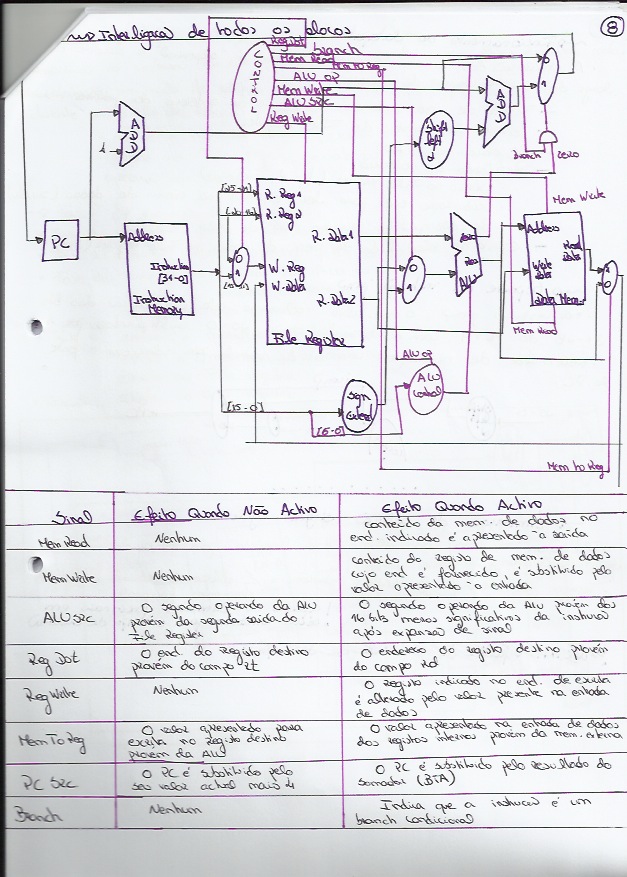 Interligação de todos os blocos
8
Reg Dst
branch
Mem Read
Mem to Reg
ALU OP
Mem Write
ALU SRC
Reg Write
CONTROL
ADD
4
ADD
Shift
left
2
0
1
Branch
ZERO
PC
Address
Instruction
[31-0]
Instruction
Memory
0
1
R. Reg 1
R. Reg 2
W. Reg
W. Data
R. Data 1
R. Data 2
File Register
0
1
Zero
Res
ALU
Mem Write
Address
Read
Data
Write
data
Data Mem.
Mem Read
1
0
ALU OP
ALU
Control
Sign
extend
[15-0]
[5-0]
Mem to Reg
Sinal
Efeito Quando Não Activo
Efeito Quando Activo
Mem Read
Nenhum
conteúdo da mem. de dados no
end. indicado é apresentado à saída
Mem Write
Nenhum
conteúdo do registo de mem. de dados
cujo end. é fornecido, é substituído pelo
valor apresentado à entrada
ALU SRC
O segundo operando da ALU
provém da segunda saída do
File Register
O segundo operando da ALU provém dos
16 bits menos significativos da instrução
após expansão de sinal
Reg Dst
O end. do Registo destino
provém do campo rt
O endereço do registo destino provém
do campo rd
Reg Write
Nenhum
O registo indicado no end. de escrita
é alterado pelo valor presente na entrada
de dados
Mem To Reg
O valor apresentado para
escrita no registo destino
provém da ALU
O valor apresentado na entrada de dados
dos registos internos provém da mem. externa
PC SRC
O PC é substituído pelo
seu valor actual mais 4
O PC é substituído pelo resultado do
somador (BTA)
Branch
Nenhum
Indica que a instrução é um
branch condicional